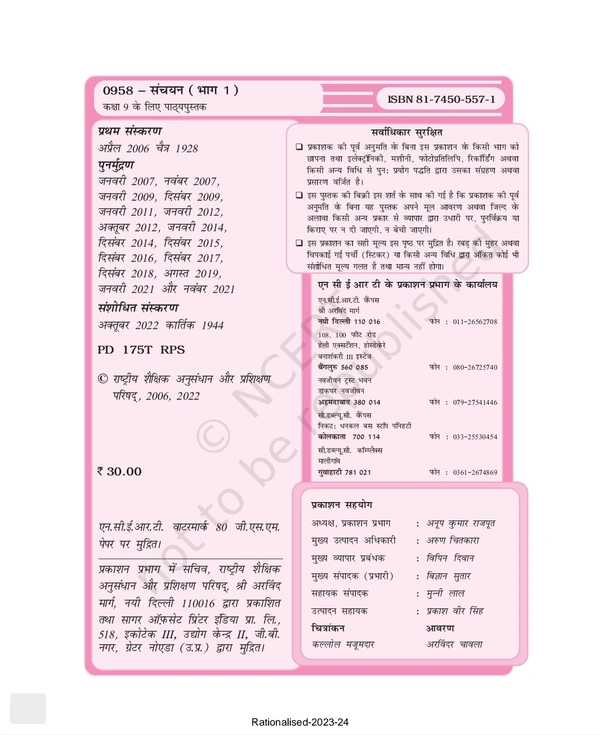 0958 – संचयन ( भाग 1 )
कक्षा 9 के लिए पाठ्यपुस्तक
ISBN 81-7450-557-1
प्रथम संस्करण
अप्रैल 2006 चैत्र 1928
पुनर्मुद्रण
जनवरी 2007, नवंबर 2007,
जनवरी 2009, दिसंबर 2009,
जनवरी 2011, जनवरी 2012,
अक्तूबर 2012, जनवरी 2014,
दिसंबर 2014, दिसंबर 2015,
दिसंबर 2016, दिसंबर 2017,
दिसंबर 2018, अगस्त 2019,
जनवरी 2021 और नवंबर 2021
संशोधित संस्करण
अक्तूबर 2022 कार्तिक 1944
PD 175T RPS
© राष्ट्रीय शैक्षिक अनुसंधान और प्रशिक्षण
परिषद् , 2006, 2022
₹ 30.00
एन.सी.ई.आर.टी. वाटरमार्क 80 जी.एस.एम.
पेपर पर मुद्रित।
प्रकाशन प्रभाग में सचिव, राष्ट्रीय शैक्षिक
अनुसंधान और प्रशिक्षण परिषद्, श्री अरविंद
मार्ग, नयी दिल्ली 110016 द्वारा प्रकाशित
तथा सागर ऑफ़सेट प्रिंटर इंडिया प्रा. लि.,
518, इकोटेक III, उद्योग केन्द्र II, जी.बी.
नगर, ग्रेटर नोएडा (उ.प्र.) द्वारा मुद्रित।
सर्वाधिकार सुरक्षित
❑ प्रकाशक की पूर्व अनुमति के बिना इस प्रकाशन के किसी भाग को
छापना तथा इलेक्ट्रॉनिकी, मशीनी, फोटोप्रतिलिपि, रिकॉर्डिंग अथवा
किसी अन्य विधि से पुन: प्रयोग पद्धति द्वारा उसका संग्रहण अथवा
प्रसारण वर्जित है।
❑ इस पुस्तक की बिक्री इस शर्त के साथ की गई है कि प्रकाशक की पूर्व
अनुमति के बिना यह पुस्तक अपने मूल आवरण अथवा जिल्द के
अलावा किसी अन्य प्रकार से व्यापार द्वारा उधारी पर, पुनर्विक्रय या
किराए पर न दी जाएगी, न बेची जाएगी।
❑ इस प्रकाशन का सही मूल्य इस पृष्ठ पर मुद्रित है। रबड़ की मुहर अथवा
चिपकाई गई पर्ची (स्टिकर) या किसी अन्य विधि द्वारा अंकित कोई भी
संशोधित मूल्य गलत है तथा मान्य नहीं होगा।
एन सी ई आर टी के प्रकाशन प्रभाग के कार्यालय
एन.सी.ई.आर.टी. कैंपस
श्री अरविंद मार्ग
नयी दिल्ली 110 016 फोन : 011-26562708
108, 100 फीट रोड
हेली एक्सटेंशन, होस्डेकेरे
बनाशंकरी III इस्टेज
बैंगलुरु 560 085 फोन : 080-26725740
नवजीवन ट्रस्ट भवन
डाकघर नवजीवन
अहमदाबाद 380 014 फोन : 079-27541446
सी.डब्ल्यू.सी. कैंपस
निकट: धनकल बस स्टॉप पनिहटी
कोलकाता 700 114 फोन : 033-25530454
सी.डब्ल्यू.सी. कॉम्प्लैक्स
मालीगांव
गुवाहाटी 781 021 फोन : 0361-2674869
प्रकाशन सहयोग
अध्यक्ष, प्रकाशन प्रभाग : अनूप कुमार राजपूत
मुख्य उत्पादन अधिकारी : अरुण चितकारा
मुख्य व्यापार प्रबंधक : विपिन दिवान
मुख्य संपादक (प्रभारी) : बिज्ञान सुतार
सहायक संपादक : मुन्नी लाल
उत्पादन सहायक : प्रकाश वीर सिंह
चित्रांकन आवरण
कल्लोल मजूमदार अरविंदर चावला
© NCERT
not to be republished
Rationalised-2023-24